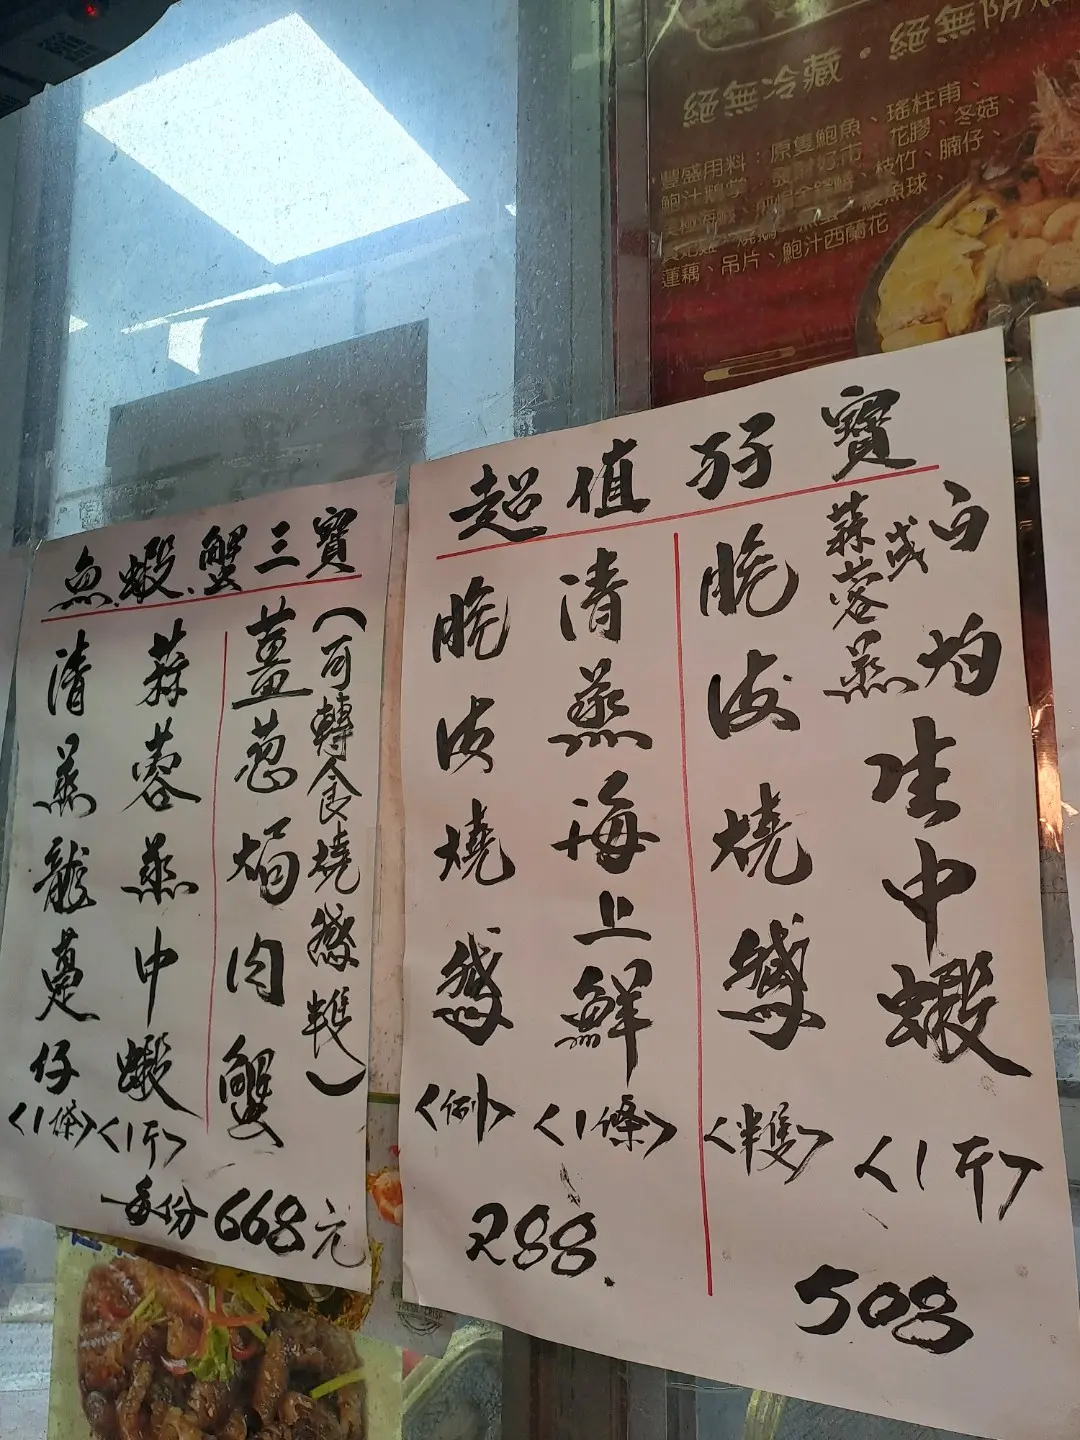 絕無冷藏·絕無防
豐盛用料：原隻鮑魚、瑤柱甫、
鮑汁鵝掌、發財好市、花膠、冬菇、
枝竹、腩仔、
鯪魚球、
蓮藕、吊片、鮑汁西蘭花
魚.蝦.蟹三寶
薑葱焗肉蟹
(可轉食燒鵝半隻)
蒜蓉蒸中蝦
<1斤>
清蒸龍躉仔
<1條>
每份668元
超值孖寶
白灼
或
蒜蓉蒸
生中蝦
<1斤>
脆皮燒鵝
<半隻>
508
清蒸海上鮮
<1條>
脆皮燒鵝
<例>
288.